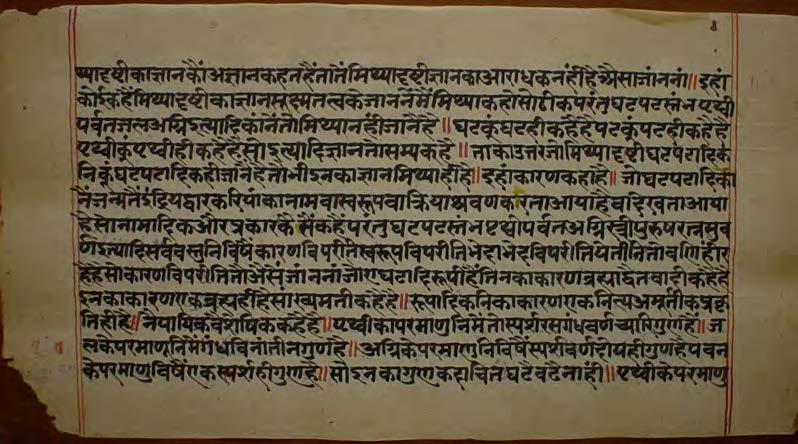 थ्यादृष्टीका ज्ञानकौं अज्ञान कहन हैं तातैं मिथ्यादृष्टी ज्ञानका आराधक नंहीं है ऐसा जांननां॥ इहां
कोई कहै मिथ्यादृष्टीका ज्ञान सूक्ष्म तत्वके जाननेंमें मिथ्या कहो सो ठीक परंतु घट पट स्तंभ पृथ्वी
पर्वत जल अग्नि इत्यादिकांनें तो मिथ्या नंही जानै है॥ घटकूं घटही कहै है पटकूं पटही कहै है
पृथ्वीकूं पृथ्वीही कहै है सो इत्यादि ज्ञान तो सम्यक है॥ ताका उत्तर जो मिथ्यादृष्टी घटपटादिक
निकूं घटपटादिकही जांनै है तौ भी इनका ज्ञान मिथ्याही है॥ इहां कारण कहा है॥ जो घटपटादिकां
नें जन्मतैं इंद्रियद्वार करि यांका नाम वा स्वरूप वा क्रिया श्रवण करता आया है व दिखता आया
है सो नामादिक और प्रकार कैसैं कहै परंतु घट पट स्तंभ पृथ्वी पर्वत अग्नि स्त्री पुरुष रत्न सुव
र्ण इत्यादि सर्व वस्तुनिविषैं कारण विपरीति स्वरूप विपरीति भेदाभेद विपरीति ये तीनि तो वणि ही र
है है सो कारण विपरीति तौ ऐसैं जांननां जो ए घटादि रूपी हैं तिनका कारण ब्रह्माद्वैतवादी कहै है
इनका कारण एक ब्रह्मही है सांख्यमती कहै है॥ रूपादिकनिका कारण एक नित्य अमूर्तीक प्रकृ
तिही है॥ नैयायिक वैशेषिक कहै है॥ पृथ्वीका परमाणुनिमैं तो स्पर्श रस गंध वर्ण च्यारि गुण हैं॥ ज
लके परमाणूनिमैं गंध विनां तीन गुण है॥ अग्निके परमाणुनिविषैं स्पर्श वर्ण दोयही गुण है पवन
के परमाणुविषैं एक स्पर्शही गुण है॥ सो इनका गुण कदाचित घटै वढै नाही॥ पृथ्वीके परमाणु